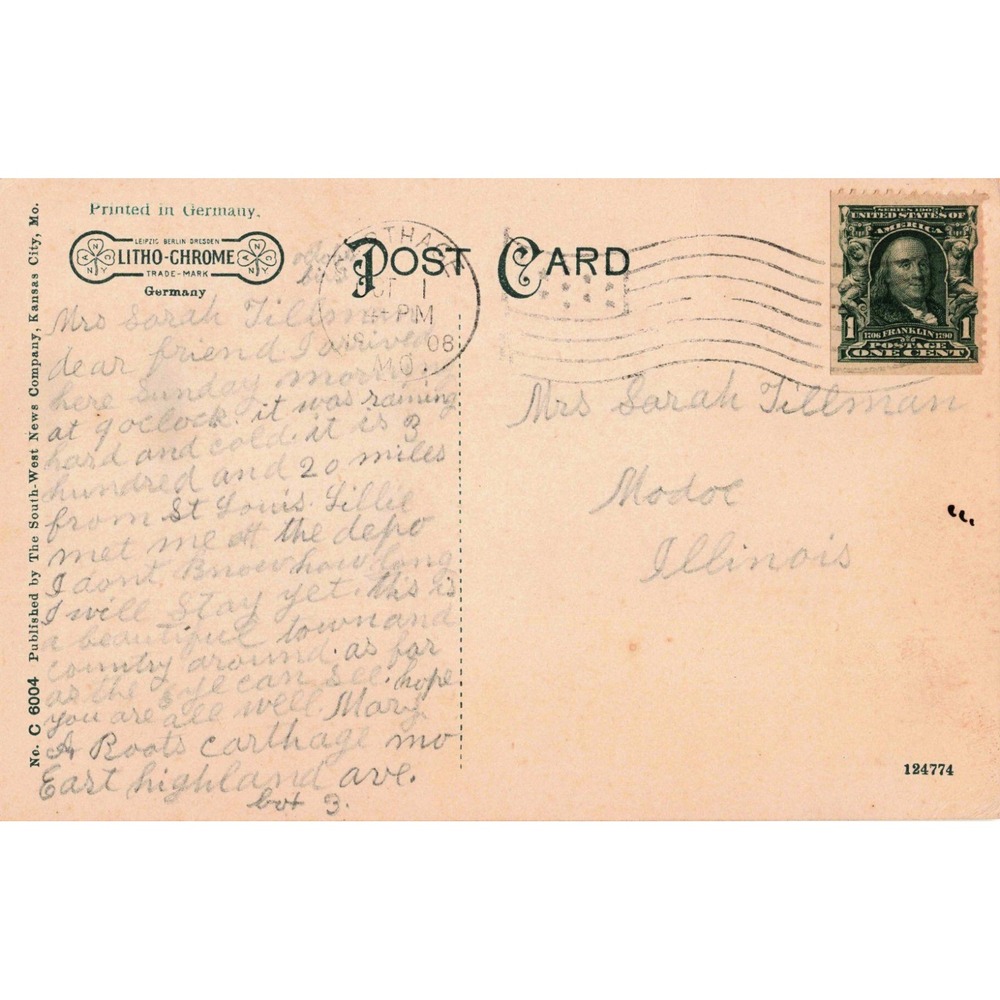 Printed in Germany.
LEIPZIG BERLIN DRESDEN
LITHO-CHROME
TRADE-MARK
Germany
POST CARD
CARTHAGE
1
PM
08
MO.
SERIES 1902
UNITED STATES OF
AMERICA
1 1706 FRANKLIN 1790 1
POSTAGE
ONE CENT
Mrs Sarah Tillman
dear friend I arrived
here Sunday morning
at 9 oclock. it was raining
hard and cold. it is 3
hundred and 20 miles
from St Louis. Lillie
met me at the depo
I dont Know how long
I will Stay yet. this is
a beautiful town and
country around. as far
as the Eye can see. hope
you are all well. Mary
A Roots carthage mo
East highland ave.
box 3.
Mrs Sarah Tillman
Modoc
Illinois
124774
No. C 6004 Published by The South-West News Company, Kansas City, Mo.